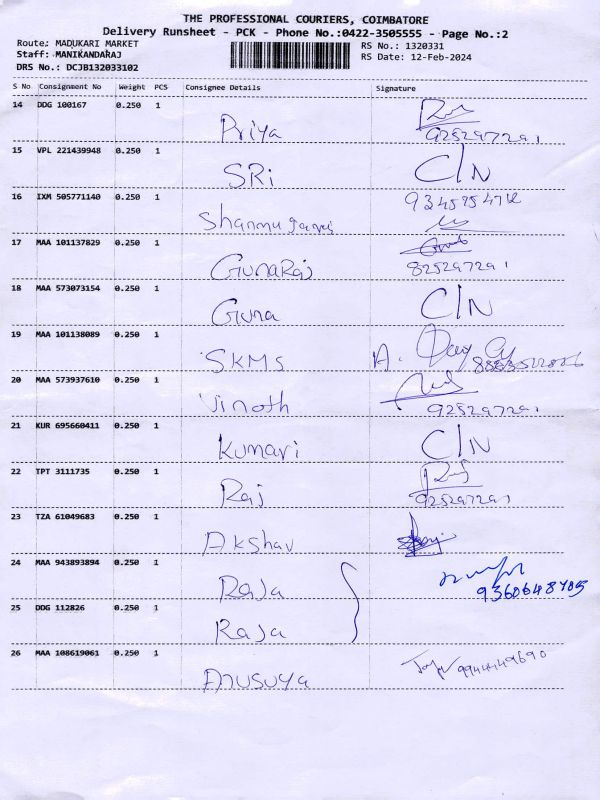 THE PROFESSIONAL COURIERS, COIMBATORE
Delivery Runsheet - PCK - Phone No.:0422-3505555 - Page No.:2
Route: MADUKARI MARKET
Staff: MANIKANDARAJ
DRS No.: DCJB132033102
RS No.: 1320331
RS Date: 12-Feb-2024
S No Consignment No Weight PCS Consignee Details Signature
14 DDG 100167 0.250 1
Priya 9252972291
15 VPL 221439948 0.250 1
SRi C/N
16 IXM 505771140 0.250 1
17 MAA 101137829 0.250 1
GunaRaj 825297291
18 MAA 573073154 0.250 1
Guna C/N
19 MAA 101138089 0.250 1
SKMS A.
20 MAA 573937610 0.250 1
Vinoth 925297291
21 KUR 695660411 0.250 1
Kumari C/N
22 TPT 3111735 0.250 1
Raj 925297291
23 TZA 61049683 0.250 1
Akshav
24 MAA 943893894 0.250 1
Raja 9360648705
25 DDG 112826 0.250 1
Raja
26 MAA 108619061 0.250 1
Anusuya 9944449690